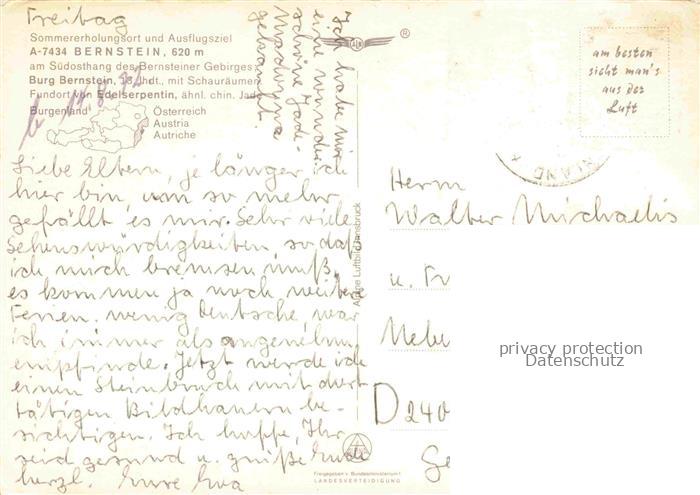 Freitag
Sommererholungsort und Ausflugsziel
A-7434 BERNSTEIN, 620 m
am Südosthang des Bernsteiner Gebirges
Burg Bernstein, 13. Jhdt., mit Schauräumen
Fundort von Edelserpentin, ähnl. chin. Jade
Burgenland
Österreich
Austria
Autriche
Ich habe mir
eine wunder-
schöne Jade-
Madonna
gekauft.
Liebe Eltern, je länger ich
hier bin, um so mehr
gefällt es mir. Sehr viele
Sehenswürdigkeiten, so daß
ich mich bremsen muß,
es kommen ja noch weitere
Ferien. wenig Deutsche, was
ich immer als angenehm
empfinde. Jetzt werde ich
einen Steinbruch mit dort
tätigen Bildhauern be-
sichtigen. Ich hoffe, Ihr
seid gesund u. grüße Euch
herzl. Eure Eva
Alpine Luftbild Innsbruck
Freigegeben v. Bundesministerium f.
LANDESVERTEIDIGUNG
®
am besten
sieht man's
aus der
Luft
Herrn
Walter Michaelis
u. Fr
Nebe
D 240
Ge
privacy protection
Datenschutz